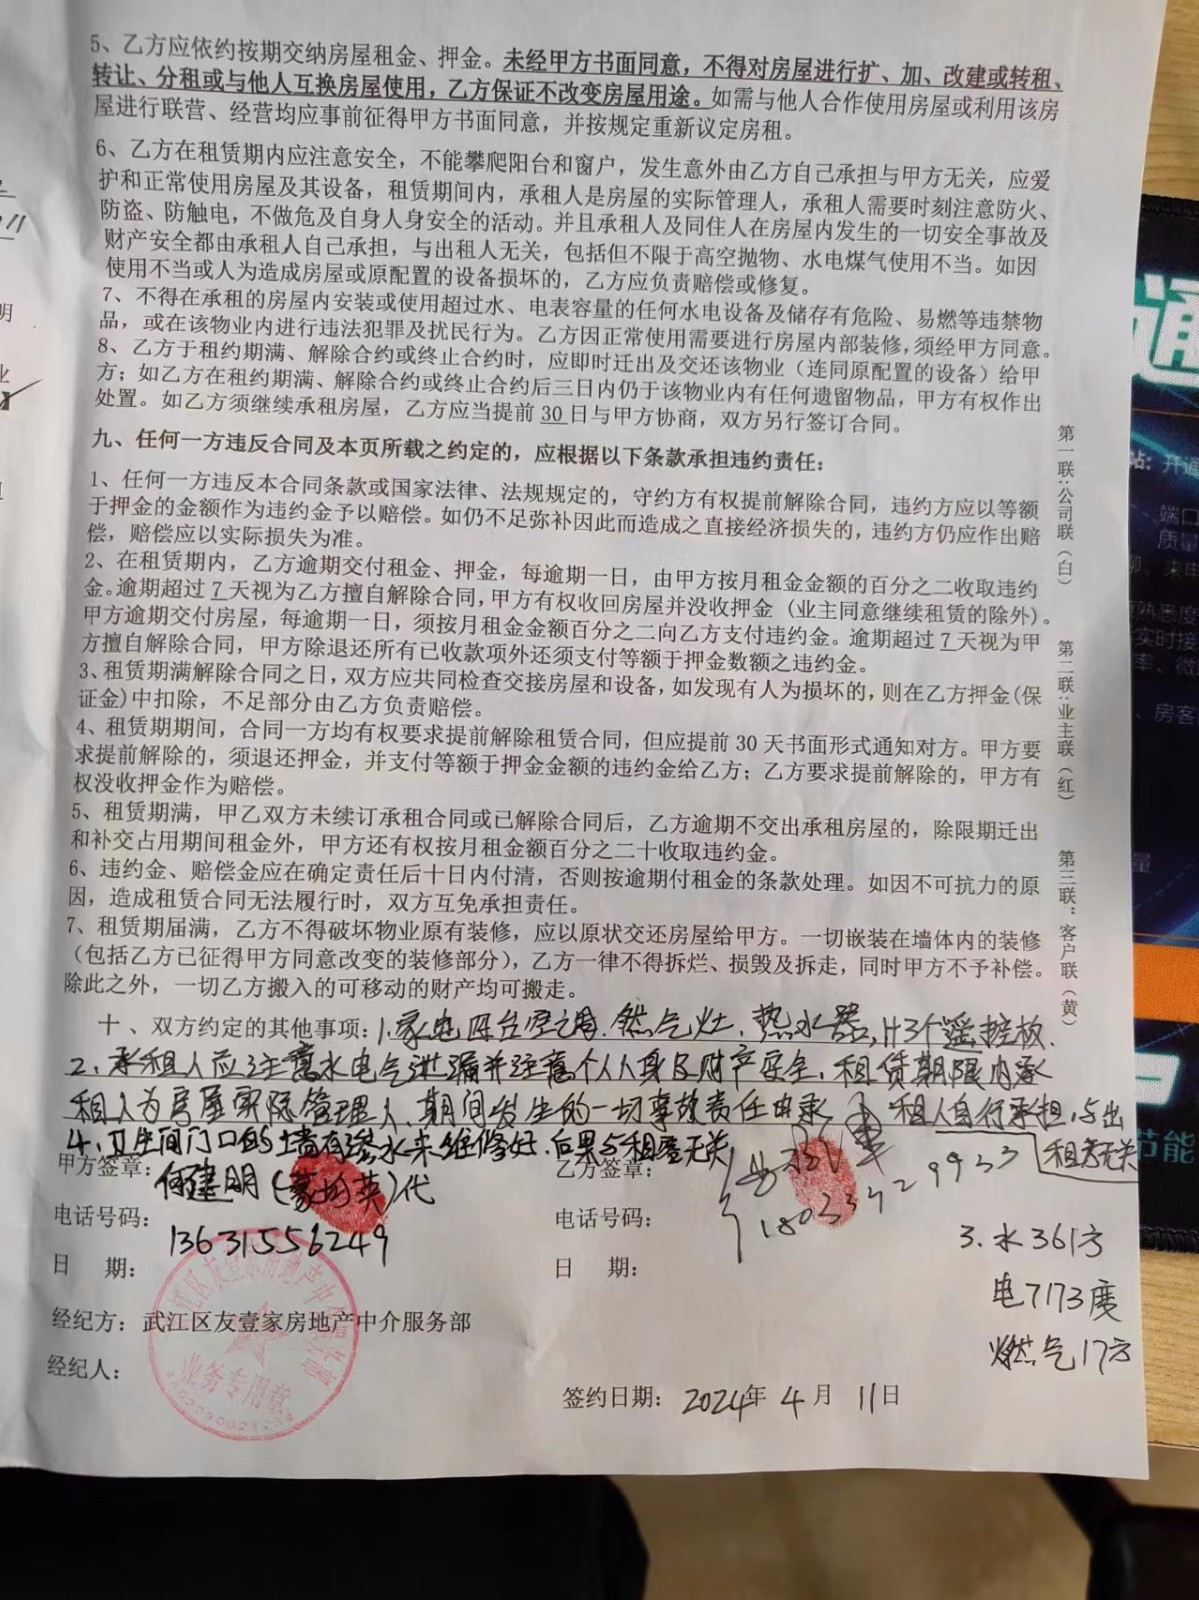 5、乙方应依约按期交纳房屋租金、押金。未经甲方书面同意，不得对房屋进行扩、加、改建或转租、
转让、分租或与他人互换房屋使用，乙方保证不改变房屋用途。如需与他人合作使用房屋或利用该房
屋进行联营、经营均应事前征得甲方书面同意，并按规定重新议定房租。
6、乙方在租赁期内应注意安全，不能攀爬阳台和窗户，发生意外由乙方自己承担与甲方无关，应爱
护和正常使用房屋及其设备，租赁期间内，承租人是房屋的实际管理人，承租人需要时刻注意防火、
防盗、防触电，不做危及自身人身安全的活动。并且承租人及同住人在房屋内发生的一切安全事故及
财产安全都由承租人自己承担，与出租人无关，包括但不限于高空抛物、水电煤气使用不当。如因
使用不当或人为造成房屋或原配置的设备损坏的，乙方应负责赔偿或修复。
7、不得在承租的房屋内安装或使用超过水、电表容量的任何水电设备及储存有危险、易燃等违禁物
品，或在该物业内进行违法犯罪及扰民行为。乙方因正常使用需要进行房屋内部装修，须经甲方同意。
8、乙方于租约期满、解除合约或终止合约时，应即时迁出及交还该物业（连同原配置的设备）给甲
方；如乙方在租约期满、解除合约或终止合约后三日内仍于该物业内有任何遗留物品，甲方有权作出
处置。如乙方须继续承租房屋，乙方应当提前 30 日与甲方协商，双方另行签订合同。
九、任何一方违反合同及本页所载之约定的，应根据以下条款承担违约责任：
1、任何一方违反本合同条款或国家法律、法规规定的，守约方有权提前解除合同，违约方应以等额
于押金的金额作为违约金予以赔偿。如仍不足弥补因此而造成之直接经济损失的，违约方仍应作出赔
偿，赔偿应以实际损失为准。
2、在租赁期内，乙方逾期交付租金、押金，每逾期一日，由甲方按月租金金额的百分之二收取违约
金。逾期超过 7 天视为乙方擅自解除合同，甲方有权收回房屋并没收押金（业主同意继续租赁的除外）。
甲方逾期交付房屋，每逾期一日，须按月租金金额百分之二向乙方支付违约金。逾期超过 7 天视为甲
方擅自解除合同，甲方除退还所有已收款项外还须支付等额于押金数额之违约金。
3、租赁期满解除合同之日，双方应共同检查交接房屋和设备，如发现有人为损坏的，则在乙方押金(保
证金)中扣除，不足部分由乙方负责赔偿。
4、租赁期期间，合同一方均有权要求提前解除租赁合同，但应提前 30 天书面形式通知对方。甲方要
求提前解除的，须退还押金，并支付等额于押金金额的违约金给乙方；乙方要求提前解除的，甲方有
权没收押金作为赔偿。
5、租赁期满，甲乙双方未续订承租合同或已解除合同后，乙方逾期不交出承租房屋的，除限期迁出
和补交占用期间租金外，甲方还有权按月租金额百分之二十收取违约金。
6、违约金、赔偿金应在确定责任后十日内付清，否则按逾期付租金的条款处理。如因不可抗力的原
因，造成租赁合同无法履行时，双方互免承担责任。
7、租赁期届满，乙方不得破坏物业原有装修，应以原状交还房屋给甲方。一切嵌装在墙体内的装修
（包括乙方已征得甲方同意改变的装修部分），乙方一律不得拆烂、损毁及拆走，同时甲方不予补偿。
除此之外，一切乙方搬入的可移动的财产均可搬走。
十、双方约定的其他事项：1.家电 空调.燃气灶.热水器,共3个遥控板.
2.承租人应注意水电气泄漏并注意个人人身及财产安全.租赁期限内承
租人为房屋实际管理人.期间发生的一切事故责任由承租人自行承担.与出
租方无关
4.卫生间门口的墙有渗水未维修好.后果与租客无关
甲方签章：何建明(蒙均英)代
乙方签章：
电话号码：13631556249
电话号码：18033429933
日 期：
日 期：
3.水361方
电7173度
燃气17方
经纪方：武江区友壹家房地产中介服务部
经纪人：
业务专用章
签约日期：2024年 4 月 11日
第一联：公司联（白）
第二联：业主联（红）
第三联：客户联（黄）
通
站：开通
端口
质量
来电
热悉度
实时接
率、微
房客
量
节能
明
业